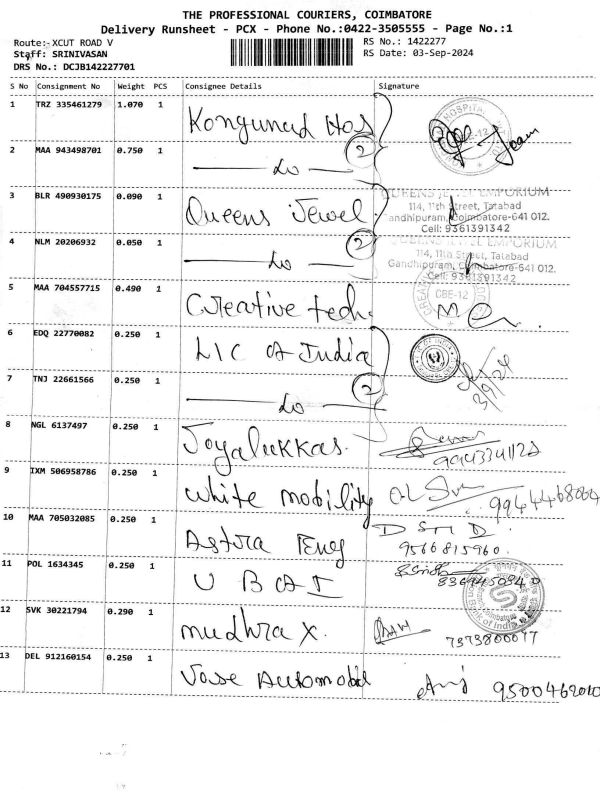 THE PROFESSIONAL COURIERS, COIMBATORE
Delivery Runsheet - PCX - Phone No.:0422-3505555 - Page No.:1
Route:- XCUT ROAD V
RS No.: 1422277
Staff: SRINIVASAN
RS Date: 03-Sep-2024
DRS No.: DCJB142227701
S No Consignment No Weight PCS Consignee Details Signature
1 TRZ 335461279 1.070 1 Kongunad Hos
2 MAA 943498701 0.750 1 do 2
3 BLR 490930175 0.090 1 Queens Jewel
QUEENS JEWEL EMPORIUM
114, 11th Street, Tatabad
Gandhipuram, Coimbatore-641 012.
Cell: 9361391342
4 NLM 20206932 0.050 1 do 2
QUEENS JEWEL EMPORIUM
114, 11th Street, Tatabad
Gandhipuram, Coimbatore-641 012.
Cell: 9361391342
5 MAA 704557715 0.490 1 Creative tech.
CBE-12
6 EDQ 22770082 0.250 1 LIC of India
7 TNJ 22661566 0.250 1 do 2
3/9/24
8 NGL 6137497 0.250 1 Joyalukkas.
9 IXM 506958786 0.250 1 White mobility
10 MAA 705032085 0.250 1 Astra Eng
9566815960.
11 POL 1634345 0.250 1 U B of I
12 SVK 30221794 0.290 1 mudhra X.
7373800077
13 DEL 912160154 0.250 1 Vase Automobil
9500462010